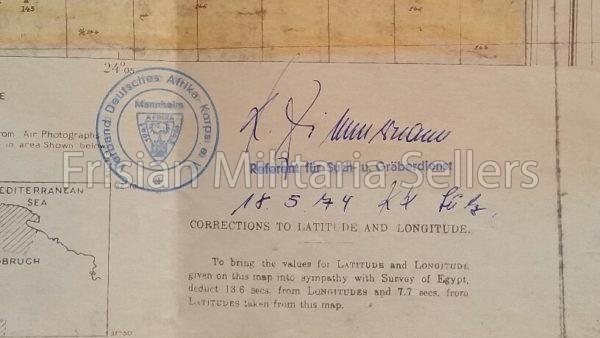 145
143
S 144
146
146
24° 05
Verband Deutsches Afrika-Korps e.
Mannheim
AFRIKA
E
Referent für Such- u. Gräberdienst
rom Air Photographs
in area Shown below
Frisian Militaria Sellers
18.5.74
EDITERRANEAN
SEA
OBRUCH
31° 50
CORRECTIONS TO LATITUDE AND LONGITUDE.
To bring the values for LATITUDE and LONGITUDE
given on this map into sympathy with Survey of Egypt,
deduct 13.6 secs. from LONGITUDES and 7.7 secs. from
LATITUDES taken from this map.